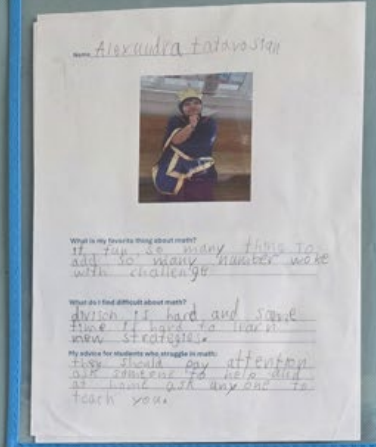 Name Alexandra Tatavosian
What is my favorite thing about math?
it fun so many thing to
add so many number woke
with challenge
What do I find difficult about math?
divison is hard and some
time it hard to learn
new strategies.
My advice for students who struggle in math:
they should pay attention
ask someone to help and
at home ask anyone to
teach you.